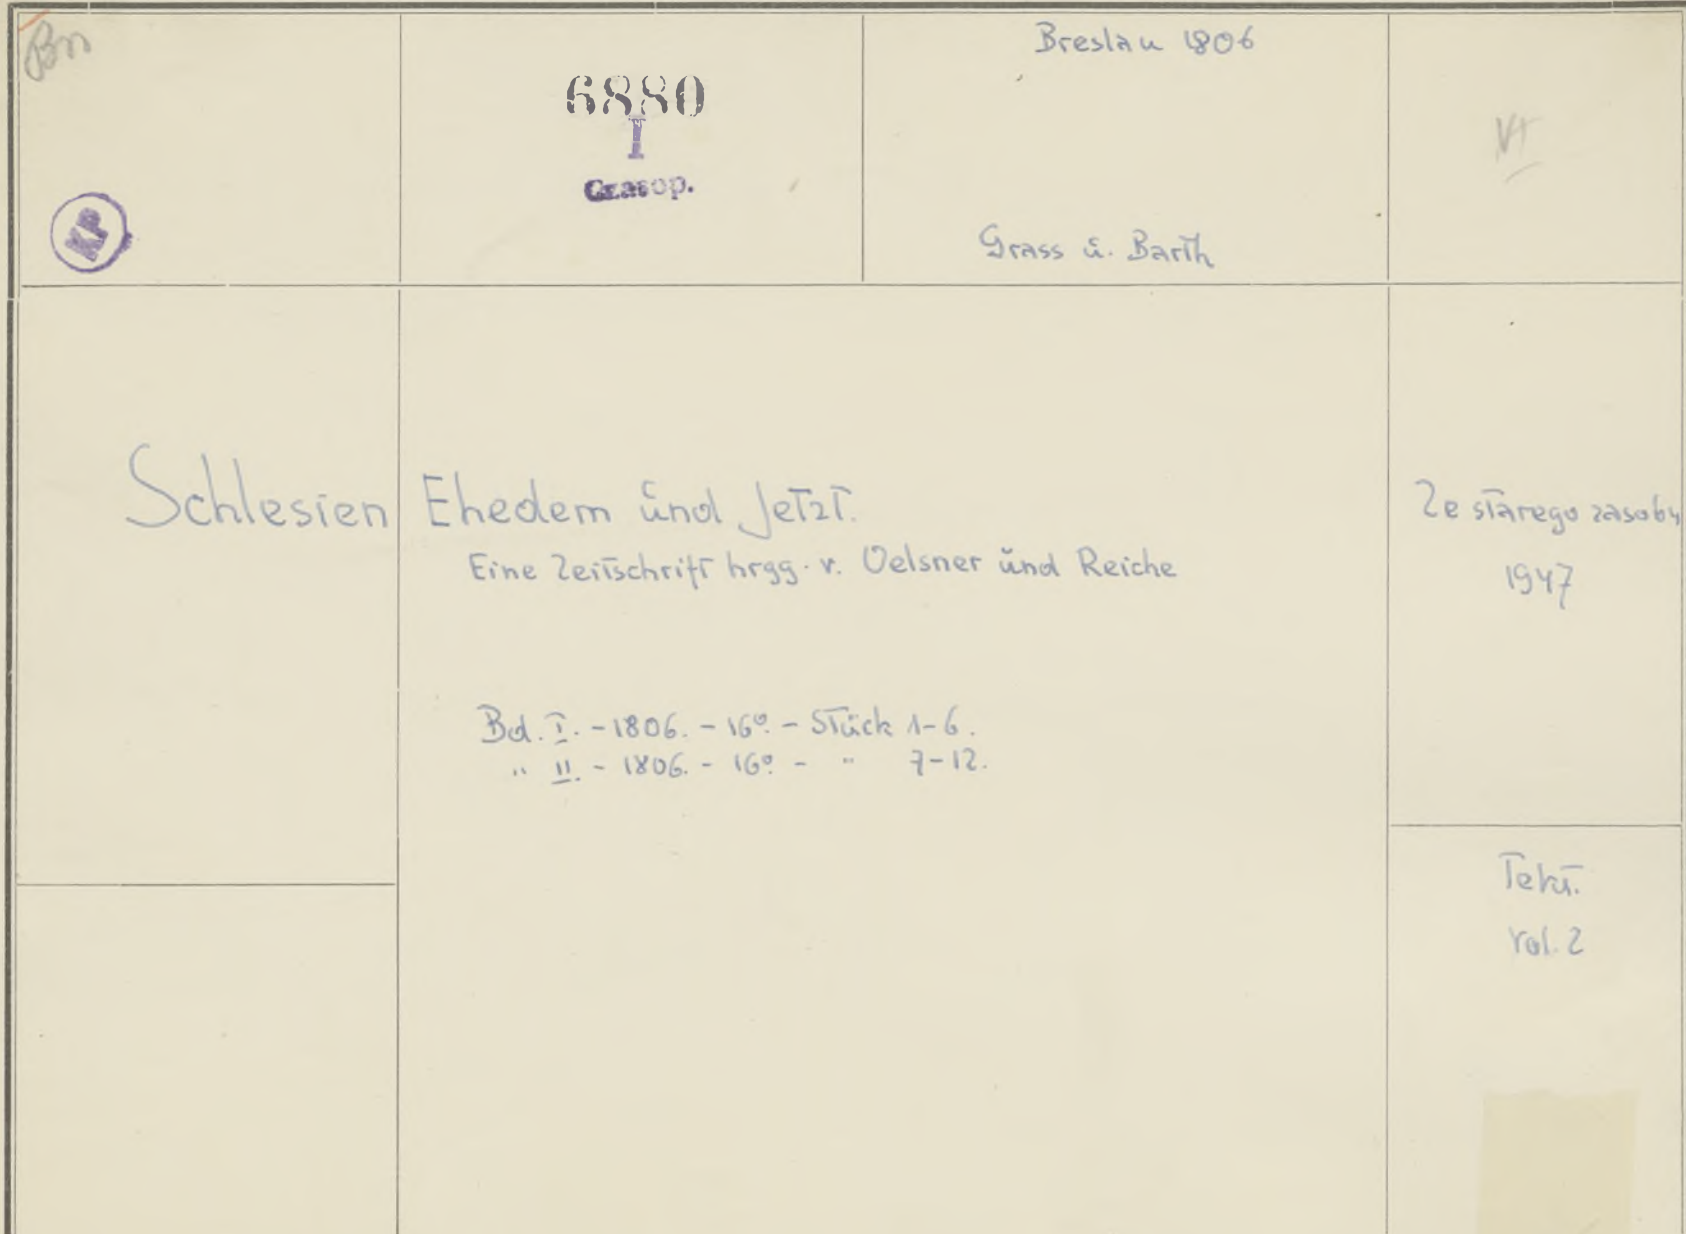 Bn
6880
I
Czasop.
Breslau 1806
Grass u. Barth
KP
Schlesien Ehedem und Jetzt.
Eine Zeitschrift hrgg. v. Oelsner und Reiche
Bd. I. - 1806. - 16° - Stück 1-6.
" II. - 1806. - 16° - " 7-12.
Ze starego zasobu
1947
Tekt.
vol. 2